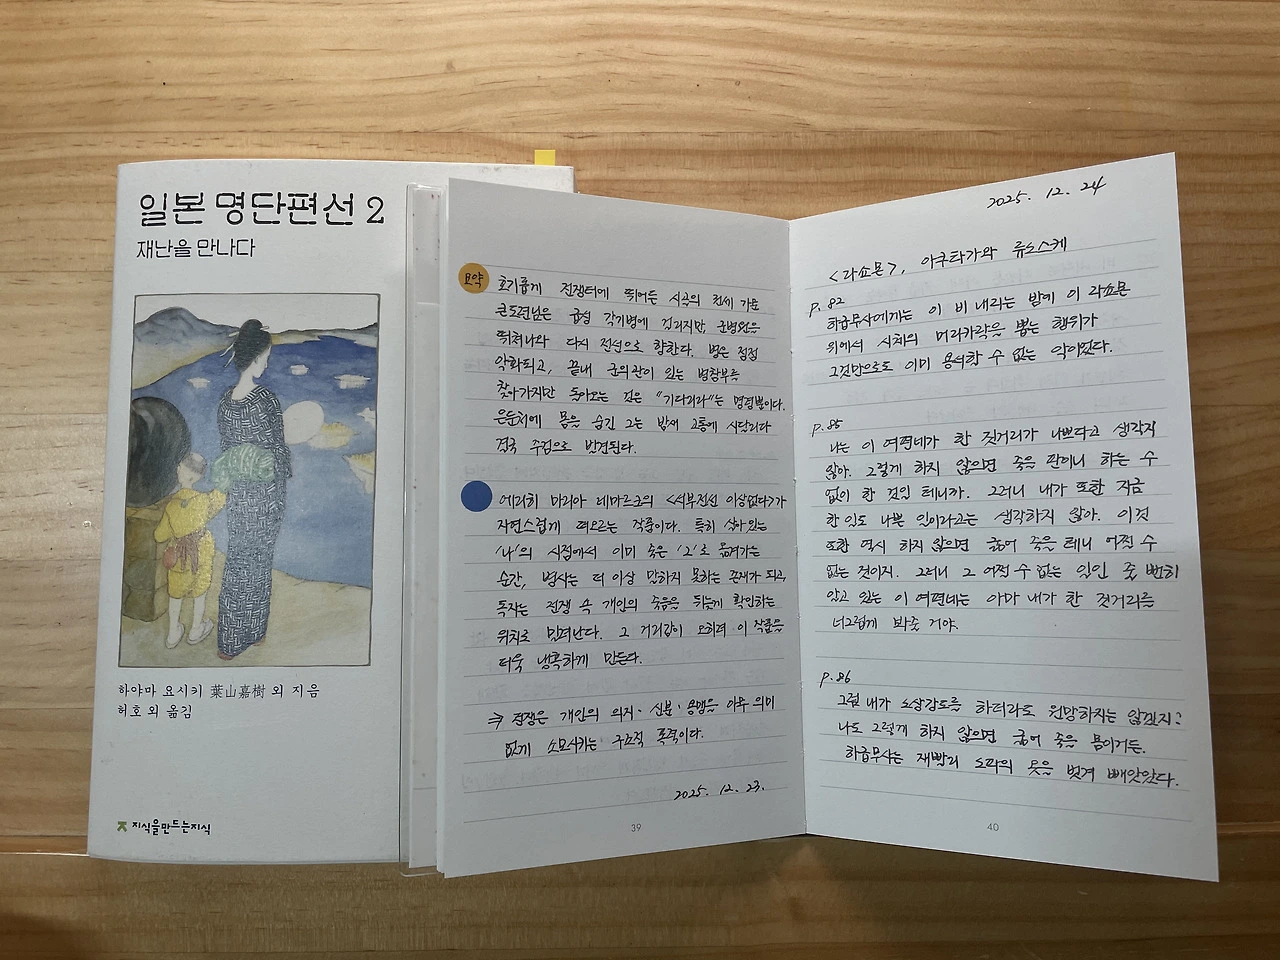 일본 명단편선 2
재난을 만나다
하야마 요시키 葉山嘉樹 외 지음
허호 외 옮김
지식을만드는지식
요약
호기롭게 전쟁터에 뛰어든 시골의 천세 가문
큰도련님은 급성 각기병에 걸리지만, 군병원을
뛰쳐나와 다시 전선으로 향한다. 병은 점점
악화되고, 끝내 군의관이 있는 병참부를
찾아가지만 돌아오는 것은 "기다리라"는 명령뿐이다.
은둔처에 몸을 숨긴 그는 밤새 고통에 시달리다
결국 주검으로 발견된다.
에리히 마리아 레마르크의 <서부전선 이상없다>가
자연스럽게 떠오르는 작품이다. 특히 살아있는
'나'의 시점에서 이미 죽은 '그'로 옮겨가는
순간, 병사는 더 이상 말하지 못하는 존재가 되고,
독자는 전쟁 속 개인의 죽음을 뒤늦게 확인하는
위치로 밀려난다. 그 거리감이 오히려 이 작품을
더욱 냉혹하게 만든다.
⇒ 전쟁은 개인의 의지·신분·용맹을 아무 의미
없게 소모시키는 구조적 폭력이다.
2025. 12. 23.
39
2025. 12. 24
<라쇼몬>, 아쿠타가와 류노스케
p. 82
하급무사에게는 이 비 내리는 밤에 이 라쇼몬
위에서 시체의 머리카락을 뽑는 행위가
그것만으로도 이미 용서할 수 없는 악이었다.
p. 85
나는 이 여편네가 한 짓거리가 나쁘다고 생각지
않아. 그렇게 하지 않으면 죽을 판이니 하는 수
없이 한 것일 테니까. 그러니 내가 또한 지금
한 일도 나쁜 일이라고는 생각하지 않아. 이것
또한 역시 하지 않으면 굶어 죽을 테니 어쩔 수
없는 것이지. 그러니 그 어쩔 수 없는 일인 줄 뻔히
알고 있는 이 여편네는 아마 내가 한 짓거리를
너그럽게 봐줄 거야.
p. 86
그럼 내가 노상강도를 하더라도 원망하지는 않겠지?
나도 그렇게 하지 않으면 굶어 죽을 몸이거든.
하급무사는 재빨리 노파의 옷을 벗겨 빼앗았다.
40